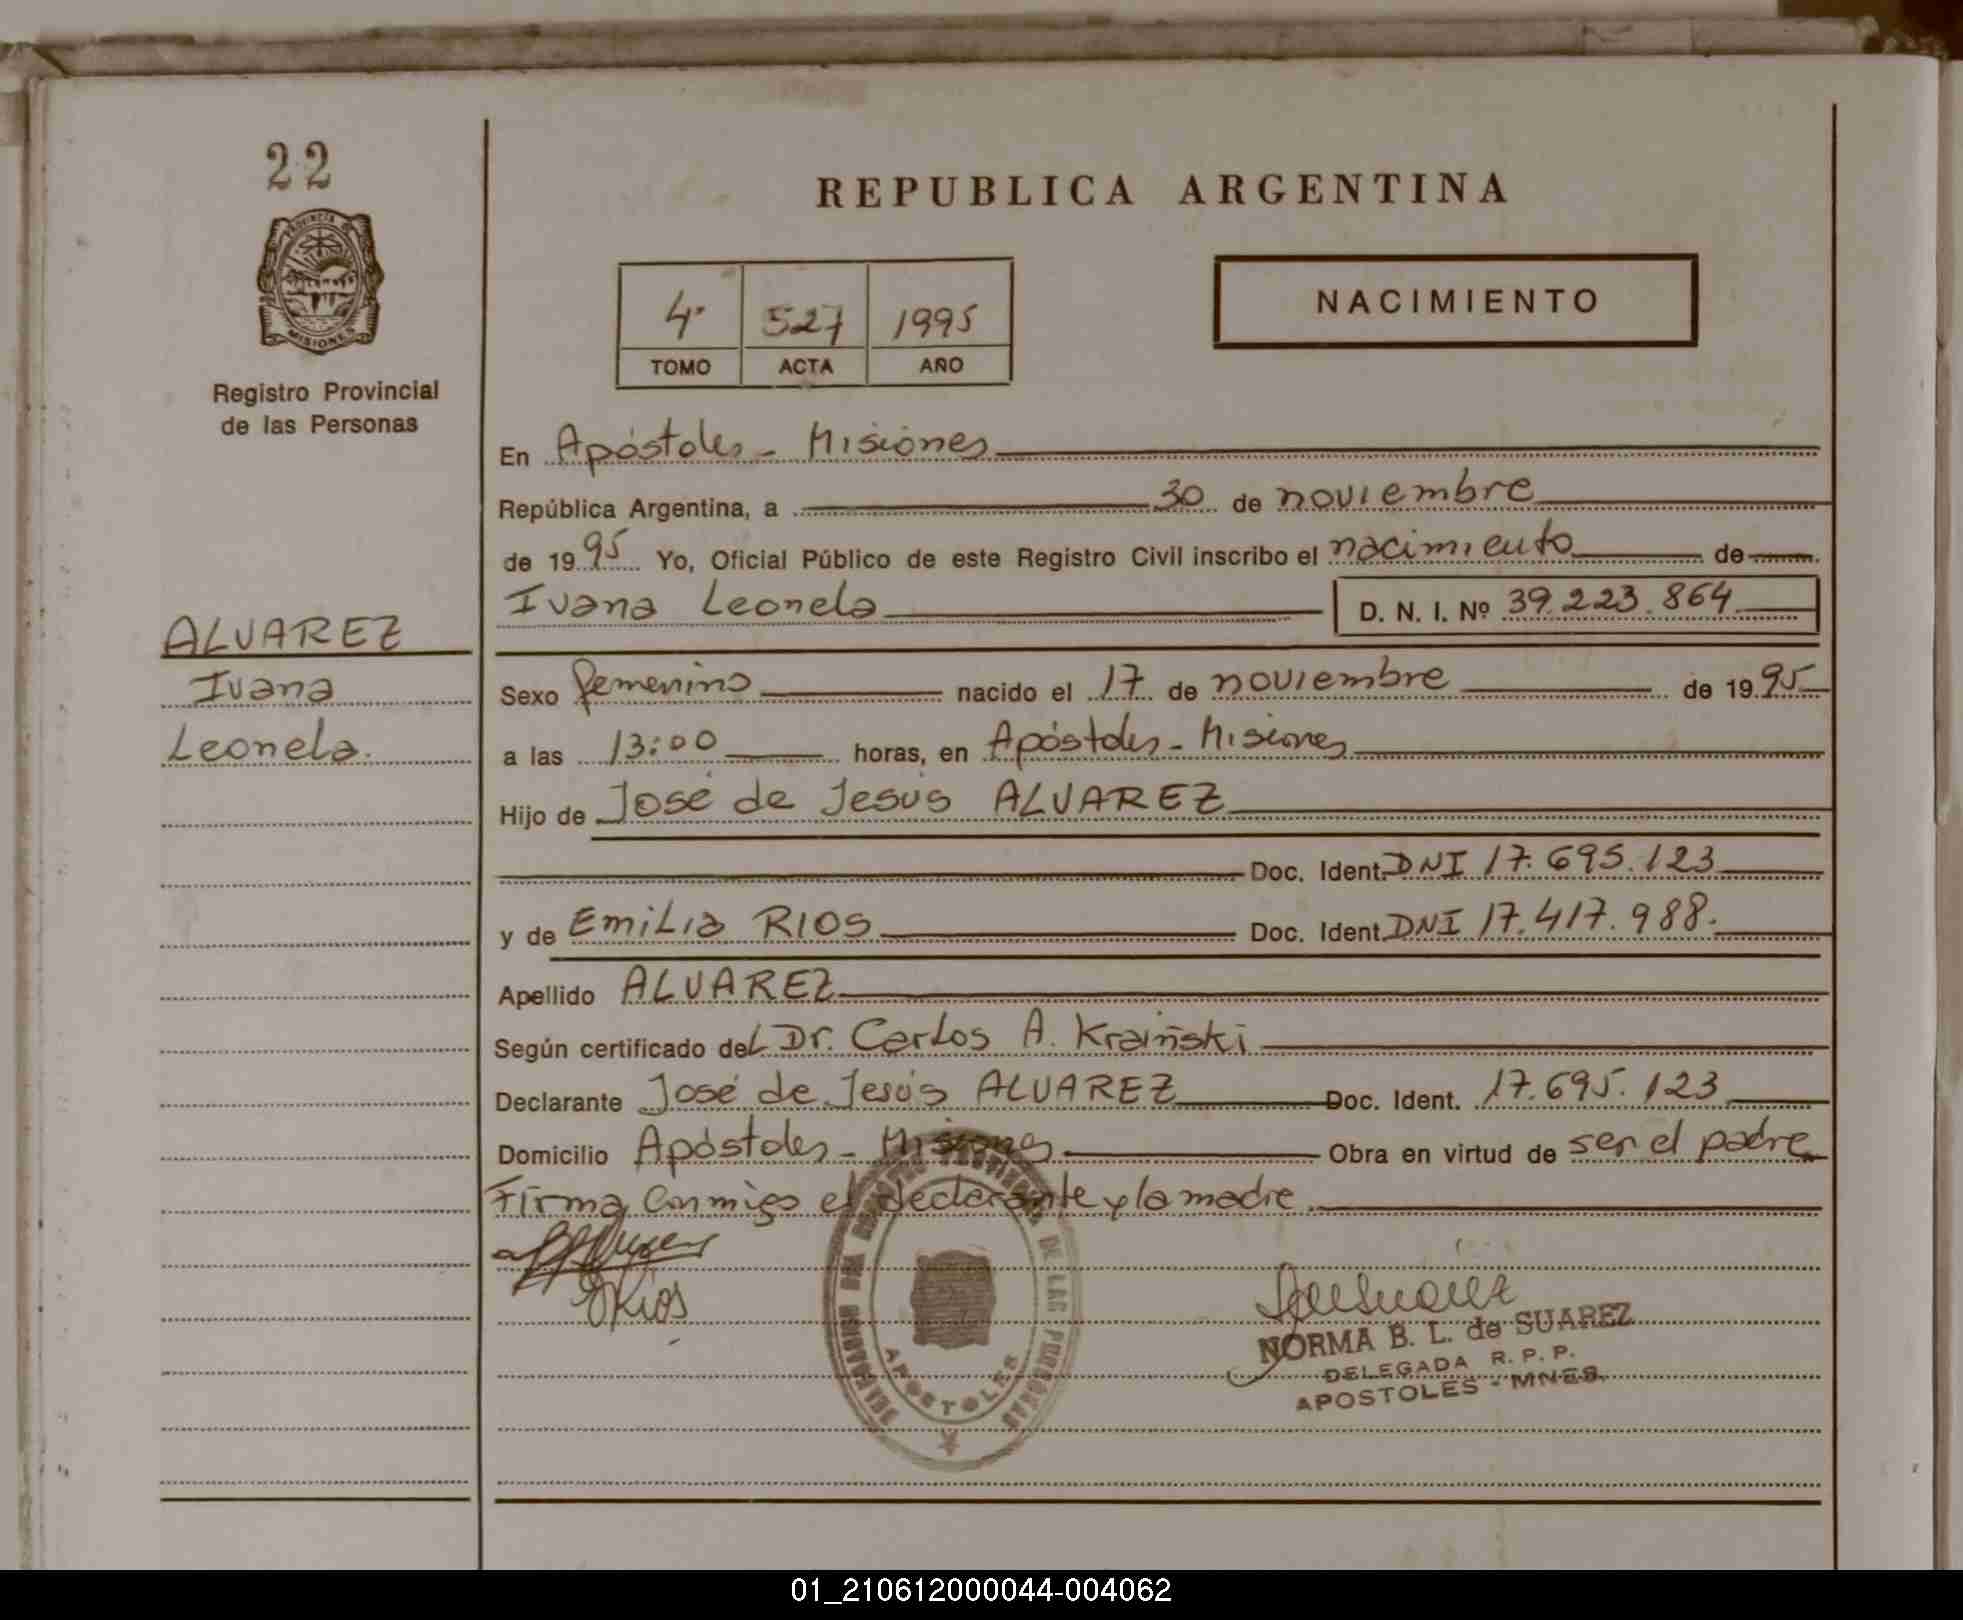 22
PROVINCIA DE
MISIONES
Registro Provincial
de las Personas
ALVAREZ
Ivana
Leonela.
REPUBLICA ARGENTINA
4º 527 1995
TOMO ACTA AÑO
NACIMIENTO
En Apóstoles - Misiones
República Argentina, a 30 de noviembre
de 1995 Yo, Oficial Público de este Registro Civil inscribo el nacimiento de
Ivana Leonela D. N. I. Nº 39.223.864
Sexo femenino nacido el 17 de noviembre de 1995
a las 13:00 horas, en Apóstoles - Misiones
Hijo de José de Jesús ALVAREZ
Doc. Ident. DNI 17.695.123
y de EmiLia RIOS Doc. Ident. DNI 17.417.988.
Apellido ALVAREZ
Según certificado deL Dr. Carlos A. Kraiñski
Declarante José de Jesús ALVAREZ Doc. Ident. 17.695.123
Domicilio Apóstoles - Misiones Obra en virtud de ser el padre
Firma conmigo el declarante y la madre
ERios
DE LAS PERSONAS
APOSTOLES
NORMA B. L. de SUAREZ
DELEGADA R. P. P.
APOSTOLES - MNES.
01_210612000044-004062